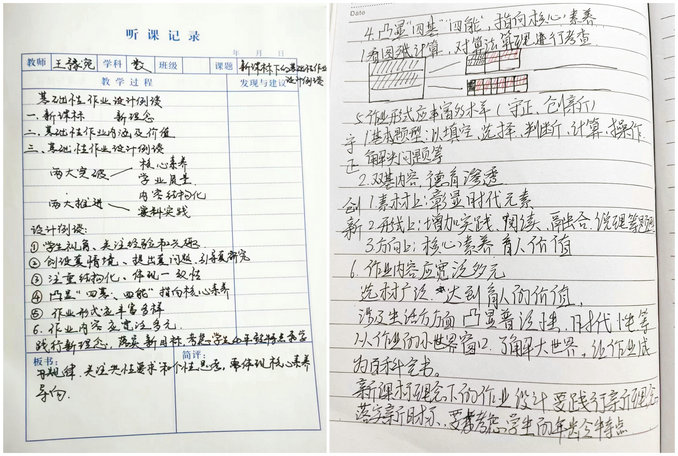 听课记录
年 月 日
教师 学科 数 班级 课题 新课标下的基础性作业设计例谈
教学过程 发现与建议
基础性作业设计例谈
一、新课标 新理念
二、基础性作业内涵及价值
三、基础性作业设计例谈
两大突破 核心素养
学业质量
两大推进 内容结构化
学科实践
设计例谈:
① 学生视角、关注经验和兴趣
② 创设真情境、提出真问题、引导真研究
③ 注重结构化、体现一致性
④ 凸显“四基、四能”指向核心素养
⑤ 作业形式应丰富多样
6. 作业内容应宽泛多元.
践行新理念,落实新目标,考虑学生的年龄特点教学
板书: 简评:
与规律,关注共性要求和个性思考,要体现核心素养
导向.
Date
4.凸显“四基”“四能”,指向核心素养
1看图纸计算,对算法算理进行考查
5.作业形式应丰富多样(守正、创新)
守正
1基本题型:以填空,选择,判断,计算,操作,
解决问题等
2.双基内容,德育渗透
创新
1素材上:彰显时代元素
2.形式上:增加实践、阅读、说理等题型
3方向上:核心素养 育人价值
6.作业内容应宽泛多元
选材广泛,达到育人的价值,
涉及生活方方面 凸显普适性,时代性等
以作业的小世界窗口,了解大世界,让作业成
为百科全书。
新课标理念下的作业设计要践行新理念
落实新目标,要考虑学生的年龄特点